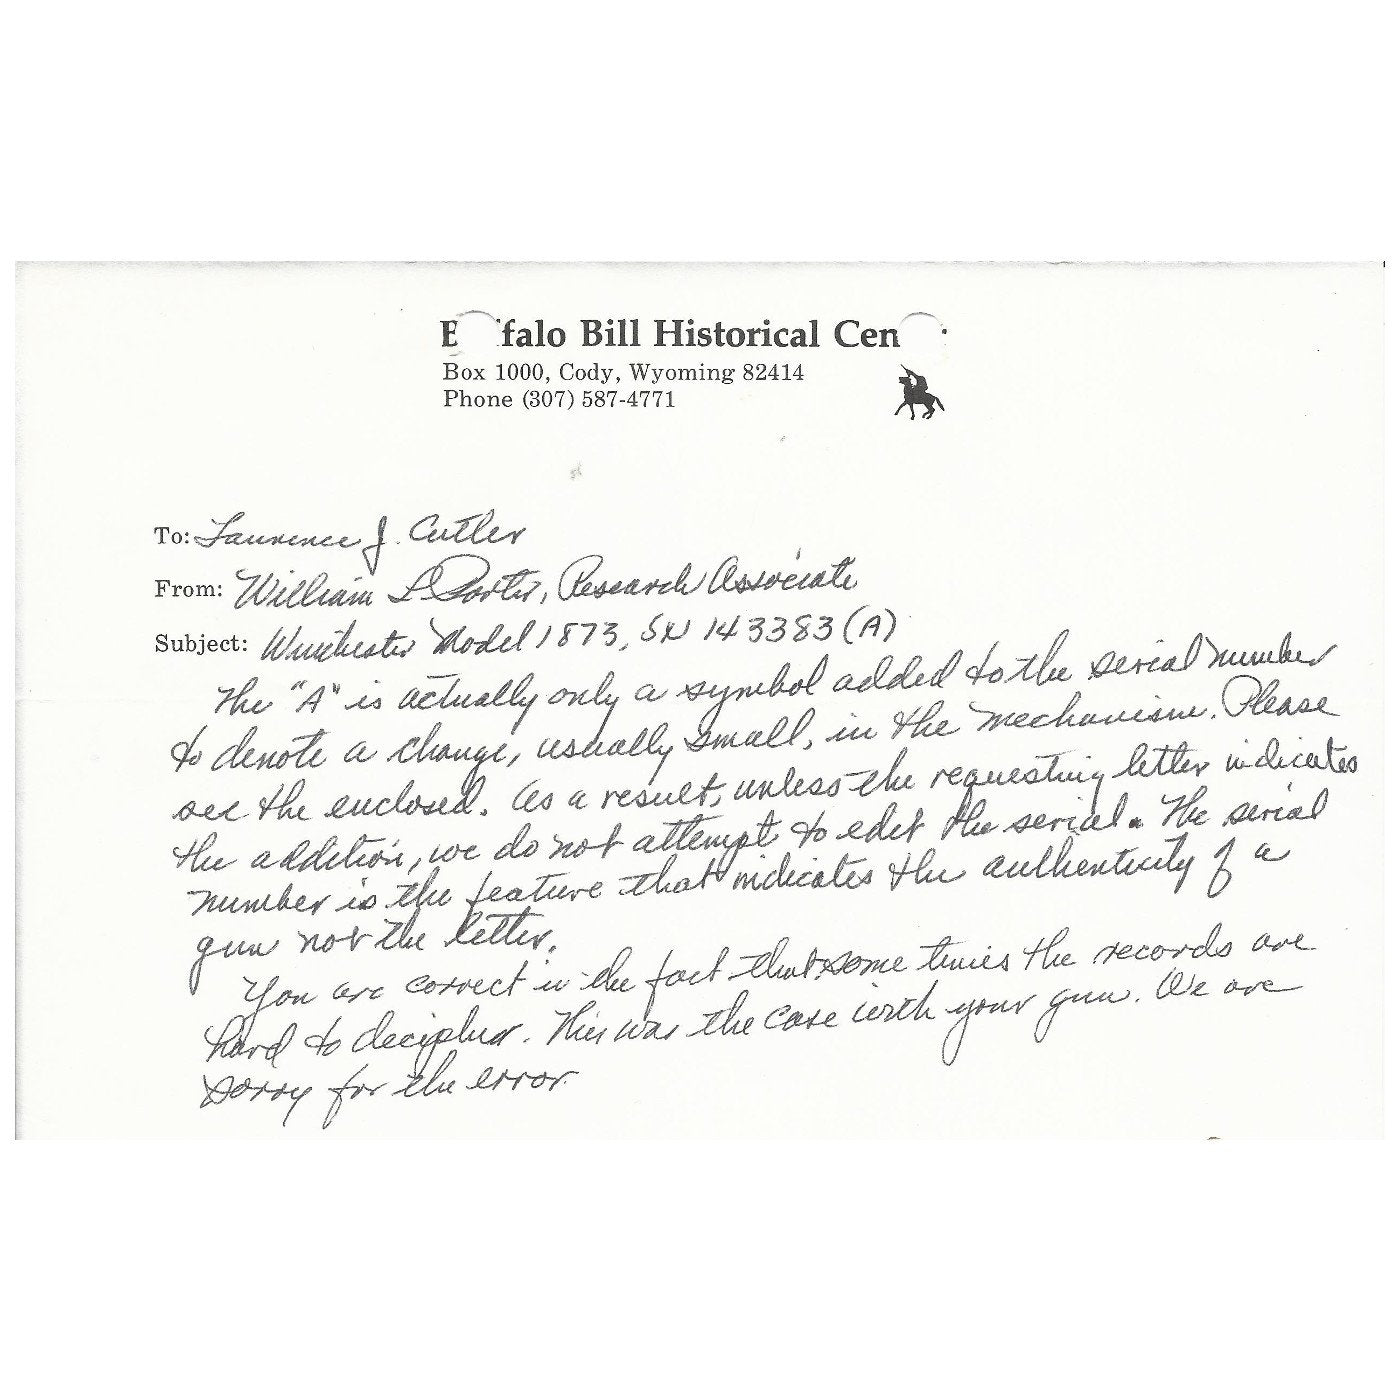 B falo Bill Historical Cen
Box 1000, Cody, Wyoming 82414
Phone (307) 587-4771
To: Laurence J. Cutler
From: William L Porter, Research Associate
Subject: Winchester Model 1873, SN 143383 (A)
The "A" is actually only a symbol added to the serial number
to denote a change, usually small, in the mechanism. Please
see the enclosed. As a result, unless the requesting letter indicates
the addition, we do not attempt to edit the serial. The serial
number is the feature that indicates the authenticity of a
gun not the letter.
You are correct in the fact that some times the records are
hard to decipher. This was the case with your gun. We are
sorry for the error.